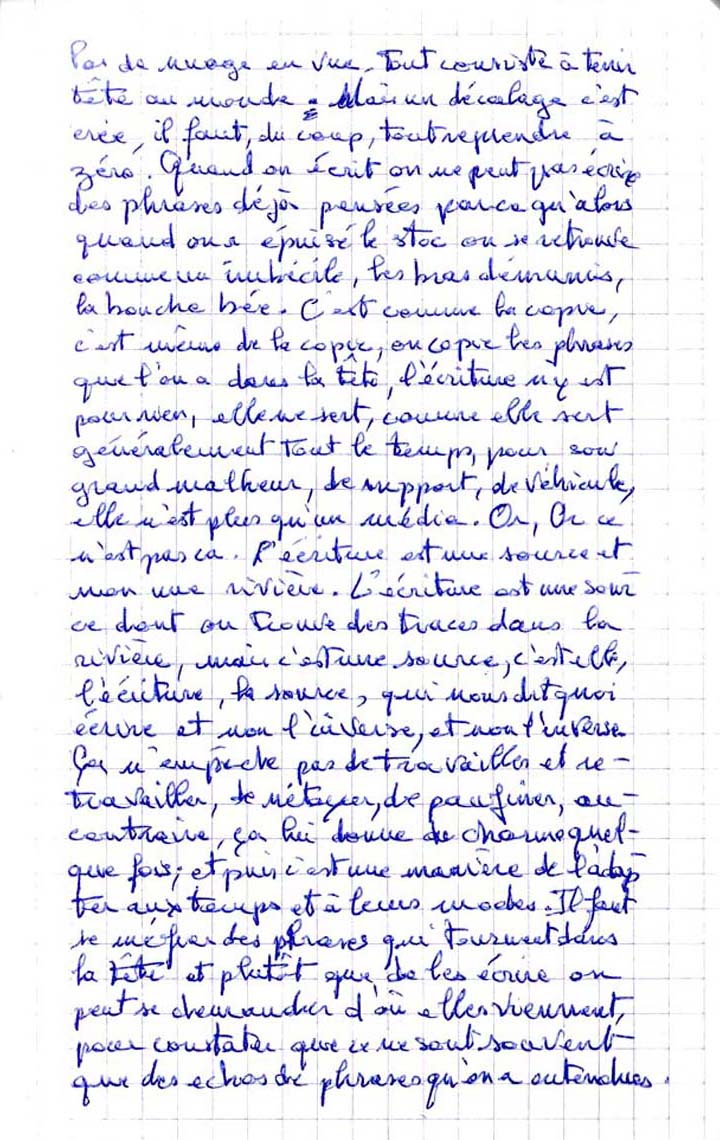 Pas de nuage en vue. Tout consiste à tenir
tête au monde. Mais un décalage c'est
créé, il faut, du coup, tout reprendre à
zéro. Quand on écrit on ne peut pas écrire
des phrases déjà pensées parce qu'alors
quand on a épuisé le stoc on se retrouve
comme un imbécile, les bras démunis,
la bouche bée. C'est comme la copie,
c'est même de la copie, on copie les phrases
que l'on a dans la tête, l'écriture n'y est
pour rien, elle ne sert, comme elle sert
généralement tout le temps, pour son
grand malheur, de support, de véhicule,
elle n'est plus qu'un média. Or, Or ce
n'est pas ca. L'écriture est une source et
non une rivière. L'écriture est une sour
ce dont on trouve des traces dans la
rivière, mais c'est une source, c'est elle,
l'écriture, la source, qui nous dit quoi
écrire et non l'inverse, et non l'inverse
Ça n'empêche pas de travailler et re-
travailler, de nétoyer, de paufiner, au-
contraire, ça lui donne du charme quel-
que fois; et puis c'est une manière de l'adap
ter aux temps et à leurs modes. Il faut
se méfier des phrases qui tournent dans
la tête et plutôt que de les écrire on
peut se demander d'où elles viennent,
pour constater que ce ne sont souvent
que des echos de phrases qu'on a entendues.